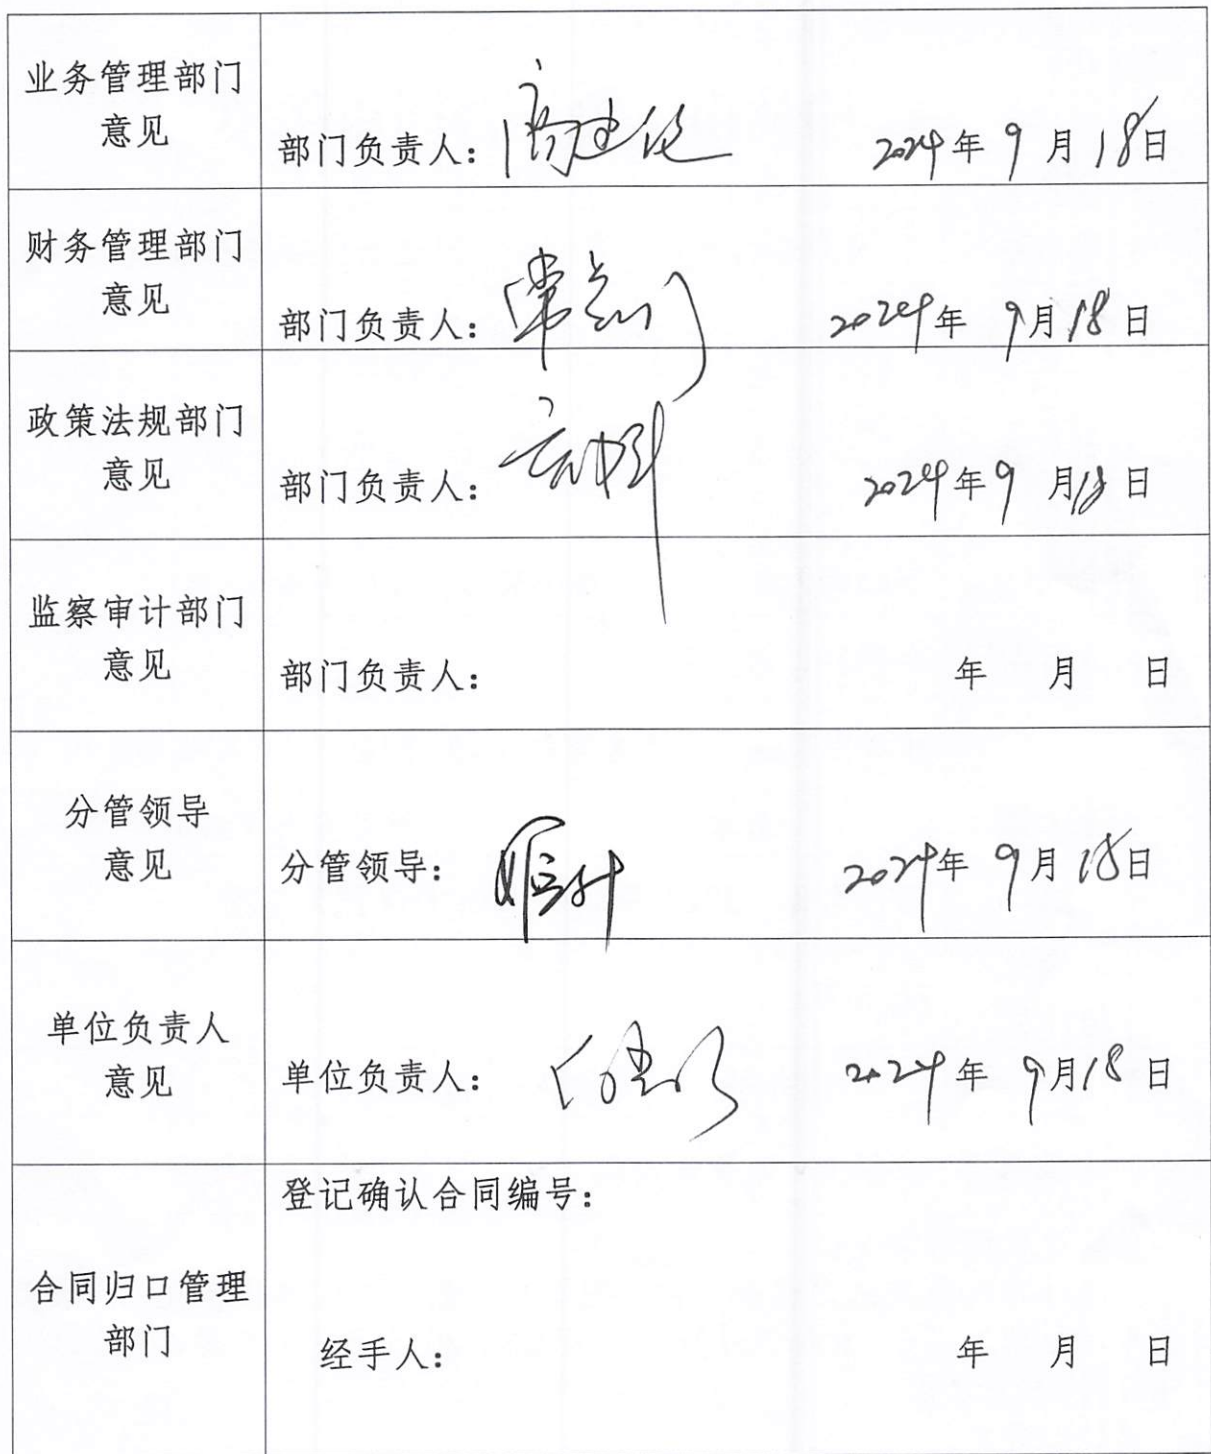 业务管理部门
意见
部门负责人： 2024年9月18日
财务管理部门
意见
部门负责人： 2024年9月18日
政策法规部门
意见
部门负责人： 2024年9月18日
监察审计部门
意见
部门负责人： 年 月 日
分管领导
意见
分管领导： 2024年9月18日
单位负责人
意见
单位负责人： 2024年9月18日
合同归口管理
部门
登记确认合同编号：
经手人： 年 月 日